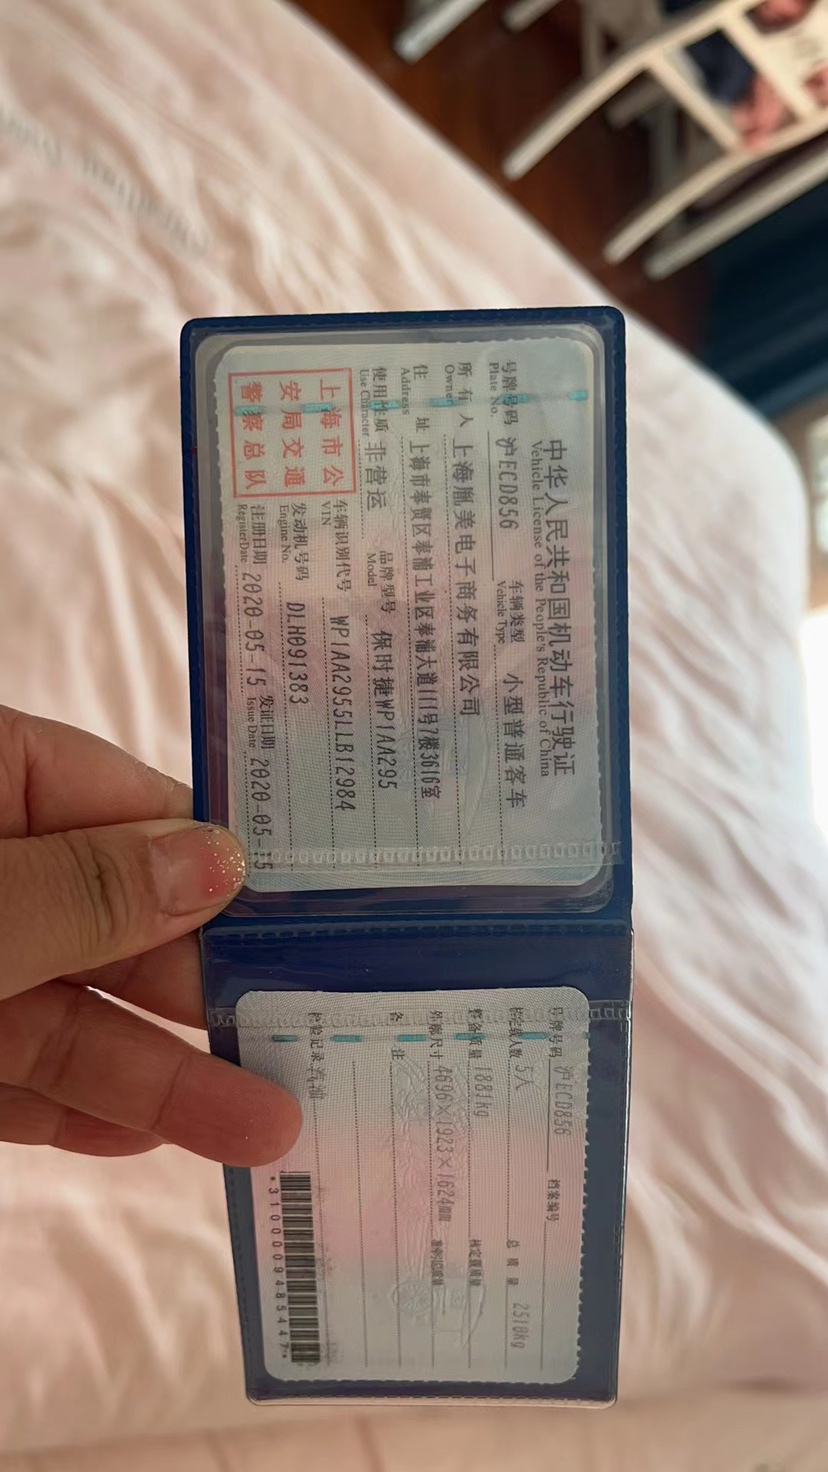 中华人民共和国机动车行驶证
Vehicle License of the People's Republic of China
号牌号码 沪ECD856 车辆类型 小型普通客车
Plate No. Vehicle Type
所有人 上海胤美电子商务有限公司
Owner
住址 上海市奉贤区奉浦工业区奉浦大道111号7楼3616室
Address
使用性质 非营运 品牌型号 保时捷WP1AA295
Use Character Model
上海市公
安局交通
警察总队
车辆识别代号 WP1AA2955LLB12984
VIN
发动机号码 DLH091383
Engine No.
注册日期 2020-05-15 发证日期 2020-05-15
Register Date Issue Date
号牌号码 沪ECD856 档案编号
核定载人数 5人 总质量 2510kg
整备质量 1881kg 核定载质量
外廓尺寸 4696×1923×1624mm 准牵引总质量
备注
检验记录 汽油
*3100009485447*